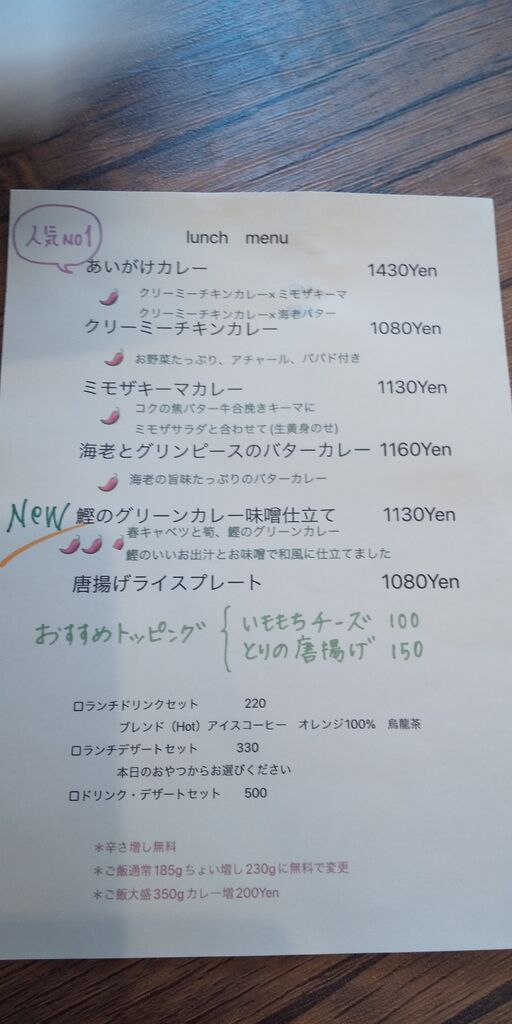 人気NO1
lunch menu
あいがけカレー 1430Yen
クリーミーチキンカレー×ミモザキーマ
クリーミーチキンカレー×海老バター
クリーミーチキンカレー 1080Yen
お野菜たっぷり、アチャール、パパド付き
ミモザキーマカレー 1130Yen
コクの焦バター牛合挽きキーマに
ミモザサラダと合わせて(生黄身のせ)
海老とグリンピースのバターカレー 1160Yen
海老の旨味たっぷりのバターカレー
New 鰹のグリーンカレー味噌仕立て 1130Yen
春キャベツと筍、鰹のグリーンカレー
鰹のいいお出汁とお味噌で和風に仕立てました
唐揚げライスプレート 1080Yen
おすすめトッピング { いももちチーズ 100
とりの唐揚げ 150
□ランチドリンクセット 220
ブレンド（Hot）アイスコーヒー オレンジ100% 烏龍茶
□ランチデザートセット 330
本日のおやつからお選びください
□ドリンク・デザートセット 500
＊辛さ増し無料
＊ご飯通常185gちょい増し230gに無料で変更
＊ご飯大盛350gカレー増200Yen